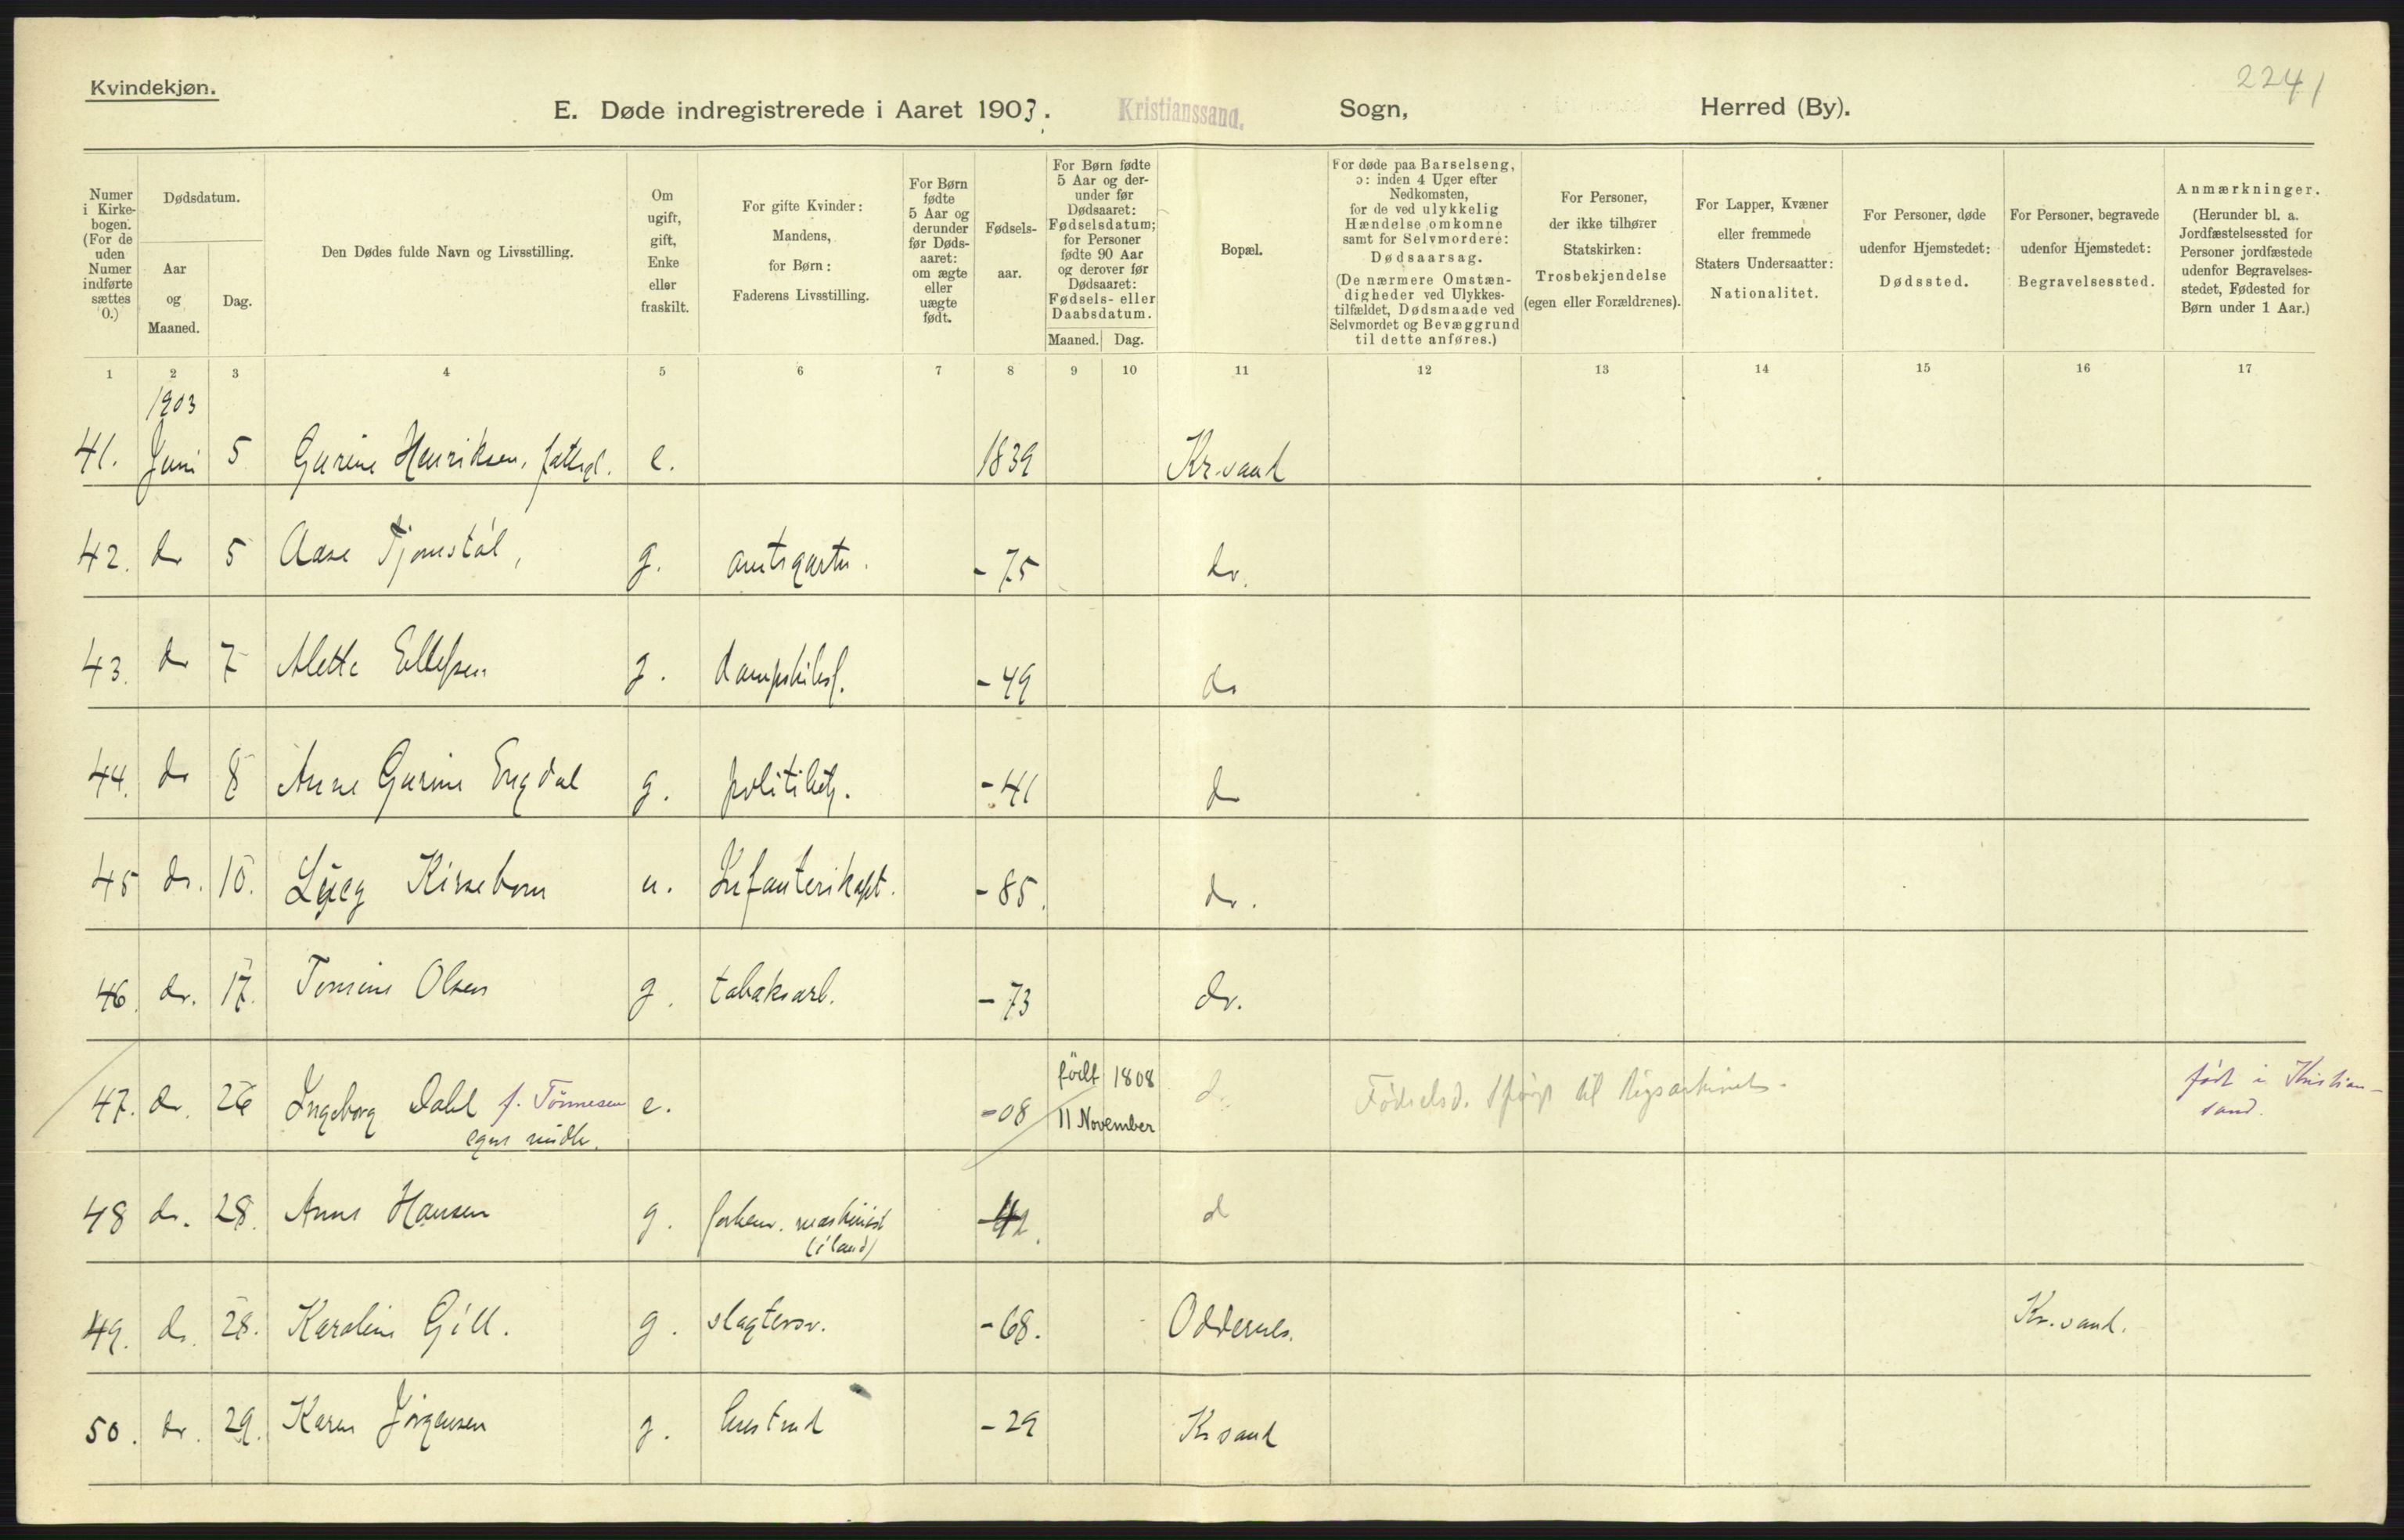 Kvindekjøn.
2241
E. Døde indregistrerede i Aaret 1903. Kristianssand. Sogn, Herred (By).
Numer i Kirkebogen. (For de uden Numer indførte sættes 0.)
Dødsdatum.
Aar og Maaned.
Dag.
Den Dødes fulde Navn og Livsstilling.
Om ugift, gift, Enke eller fraskilt.
For gifte Kvinder: Mandens, for Børn: Faderens Livsstilling.
For Børn fødte 5 Aar og derunder før Dødsaaret: om ægte eller uægte født.
Fødselsaar.
For Børn fødte 5 Aar og derunder før Dødsaaret: Fødselsdatum; for Personer fødte 90 Aar og derover før Dødsaaret: Fødsels- eller Daabsdatum.
Maaned. Dag.
Bopæl.
For døde paa Barselseng, ɔ: inden 4 Uger efter Nedkomsten, for de ved ulykkelig Hændelse omkomne samt for Selvmordere: Dødsaarsag. (De nærmere Omstændigheder ved Ulykkestilfældet, Dødsmaade ved Selvmordet og Bevæggrund til dette anføres.)
For Personer, der ikke tilhører Statskirken: Trosbekjendelse (egen eller Forældrenes).
For Lapper, Kvæner eller fremmede Staters Undersaatter: Nationalitet.
For Personer, døde udenfor Hjemstedet: Dødssted.
For Personer, begravede udenfor Hjemstedet: Begravelsessted.
Anmærkninger. (Herunder bl. a. Jordfæstelsessted for Personer jordfæstede udenfor Begravelsesstedet, Fødested for Børn under 1 Aar.)
1 2 3 4 5 6 7 8 9 10 11 12 13 14 15 16 17
1903
41. Juni 5 Gurine Henriksen, fattigl. e. 1839 Kr.sand
42. do 5 Aase Tjomstøl, g. amtsgartn. - 75 do.
43. do 7 Alette Ellefsen g. dampskibsf. - 49 do
44. do 8 Anne Gurine Engdal g. politibetj. - 41 do
45 do. 10. Lycy Kisseborn u. Infanterikapt. - 85. do.
46. do. 17. Tomine Olsen g. tabaksarb. - 73 do.
47. do. 26 Ingeborg Dahl f. Tönnesen e. - 08 født 1808 d. Fødselsd. spørgt til Rigsarkivet. født i Kristian-
egne midle. 11 November sand.
48 do. 28. Anne Hansen g. forhenv. maskinist d
(i land)
49. do. 28. Karoline Gill. g. slagtersv. - 68. Oddernes. Kr.sand.
50. do. 29. Karen Jörgensen g. hustru - 29 Krsand